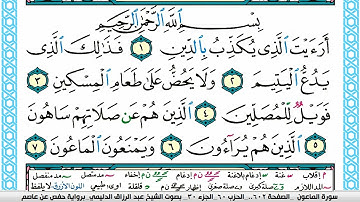 بِسْمِ اللَّهِ الرَّحْمَٰنِ الرَّحِيمِ
أَرَءَيْتَ الَّذِي يُكَذِّبُ بِالدِّينِ ١ فَذَٰلِكَ الَّذِي
يَدُعُّ الْيَتِيمَ ٢ وَلَا يَحُضُّ عَلَىٰ طَعَامِ الْمِسْكِينِ ٣
فَوَيْلٌ لِّلْمُصَلِّينَ ٤ الَّذِينَ هُمْ عَن صَلَاتِهِمْ سَاهُونَ
٥ الَّذِينَ هُمْ يُرَاءُونَ ٦ وَيَمْنَعُونَ الْمَاعُونَ ٧
سورة الماعون - الصفحة ٦٠٢ - الحزب ٦٠ - الجزء ٣٠ - بصوت الشيخ عبد الرزاق الدليمي - برواية حفص عن عاصم